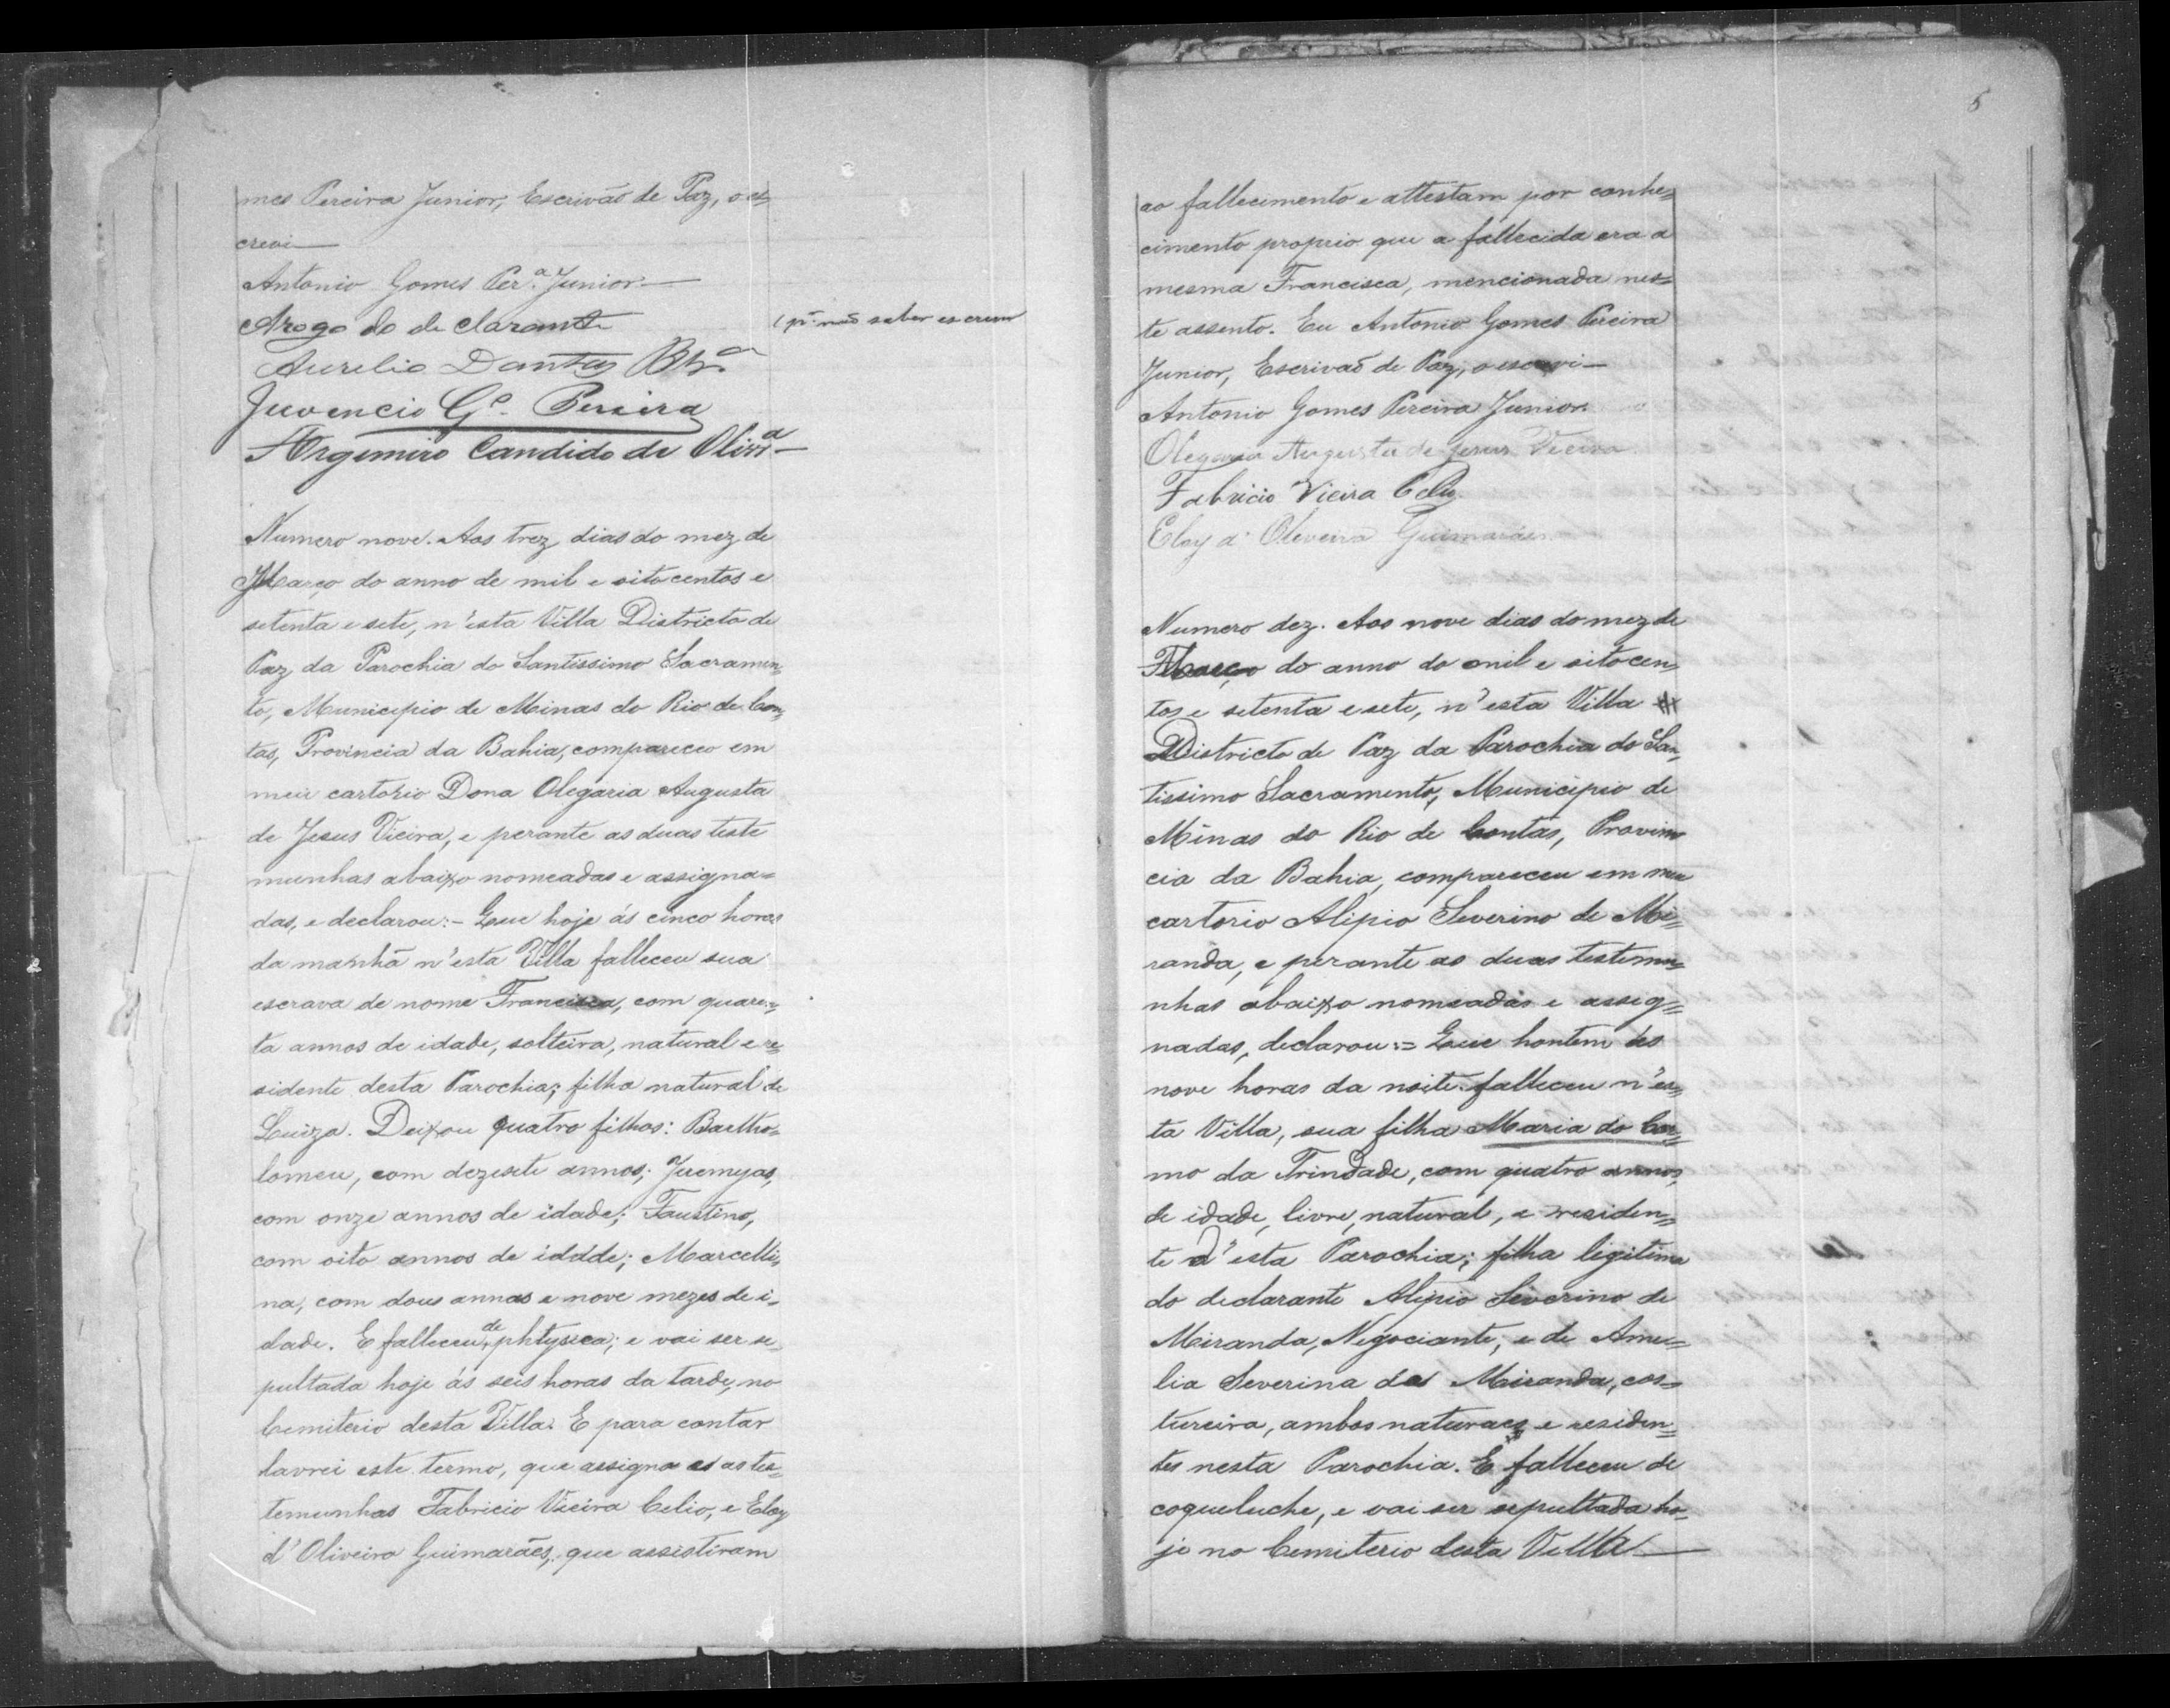 mes Pereira Junior, Escrivão de Paz, o es=
crevi—
Antonio Gomes Per.ª Junior.—
Arogo do de clarante (pr. não saber escrever
Aurelio Dantas
Juvencio G.es Pereira
Argemiro Candido de Olivrª—
Numero nove. Aos trez dias do mez de
Março do anno de mil e oitocentos e
setenta e sete, n'esta Villa Districto de
Paz da Parochia do Santissimo Sacramen=
to, Municipio de Minas do Rio de Con=
tas, Provincia da Bahia, compareceo em
meu cartorio Dona Olegaria Augusta
de Jesus Vieira, e perante as duas teste
munhas abaixo nomeadas e assigna=
das, e declarou:- Que hoje ás cinco horas
da manhã n'esta Villa falleceu sua
escrava de nome Francisca, com quaren=
ta annos de idade, solteira, natural e re=
sidente desta Parochia; filha natural de
Luiza. Deixou quatro filhos: Bartho=
lomeu, com dezesete annos; Jeremyas,
com onze annos de idade; Faustino,
com oito annos de iddde; Marcelli=
na, com dous annos e nove mezes de i=
dade. E falleceu de phtysica; e vai ser se=
pultada hoje ás seis horas da tarde, no
Cemiterio desta Villa. E para contar
lavrei este termo, que assigna as tes=
temunhas Fabricio Vieira Celio, e Eloy
d'Oliveira Guimarães, que assistiram
5
ao fallecimento e attestam por conhe=
cimento proprio que a fallecida era a
mesma Francisca, mencionada nes=
te assento. Eu Antonio Gomes Pereira
Junior, Escrivão de Paz, o escrevi—
Antonio Gomes Pereira Junior.
Olegaria Augusta de Jesus Vieira
Fabricio Vieira Celio.
Eloy d' Oliveira Guimarães
Numero dez. Aos nove dias do mez de
Março do anno do mil e oitocen=
tos e setenta e sete, n'esta Villa
Districto de Paz da Parochia do San=
tissimo Sacramento, Municipio de
Minas do Rio de Contas, Provin=
cia da Bahia, compareceu em meu
cartorio Alipio Severino de Mi=
randa, e perante as duas testemu=
nhas abaixo nomeadas e assig=
nadas, declarou:= Que hontem ás
nove horas da noite falleceu n'es=
ta Villa, sua filha Maria do Car=
mo da Trindade, com quatro annos,
de idade, livre, natural, e residen=
te d'esta Parochia; filha legitima
do declarante Alipio Severino de
Miranda, Negociante; e de Ame=
lia Severina de Miranda, cos=
tureira, ambos naturaes e residen=
tes nesta Parochia. E falleceu de
coqueluche, e vai ser sepultada ho=
je no Cemiterio desta Villa—